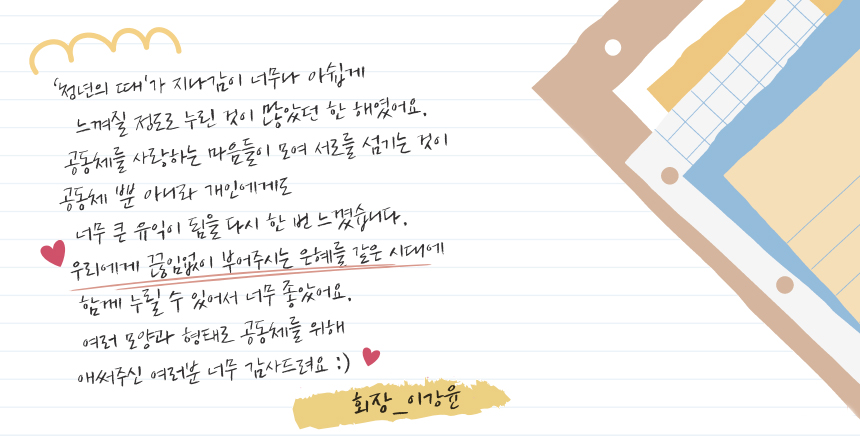 '청년의 때'가 지나감이 너무나 아쉽게
느껴질 정도로 누린 것이 많았던 한 해였어요.
공동체를 사랑하는 마음들이 모여 서로를 섬기는 것이
공동체 뿐 아니라 개인에게도
너무 큰 유익이 됨을 다시 한 번 느꼈습니다.
우리에게 끊임없이 부어주시는 은혜를 같은 시대에
함께 누릴 수 있어서 너무 좋았어요.
여러 모양과 형태로 공동체를 위해
애써주신 여러분 너무 감사드려요 :)
회장_이강윤